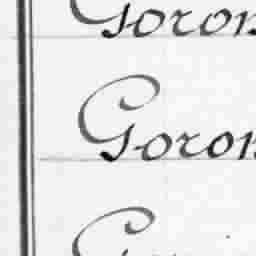 Goron
Goron